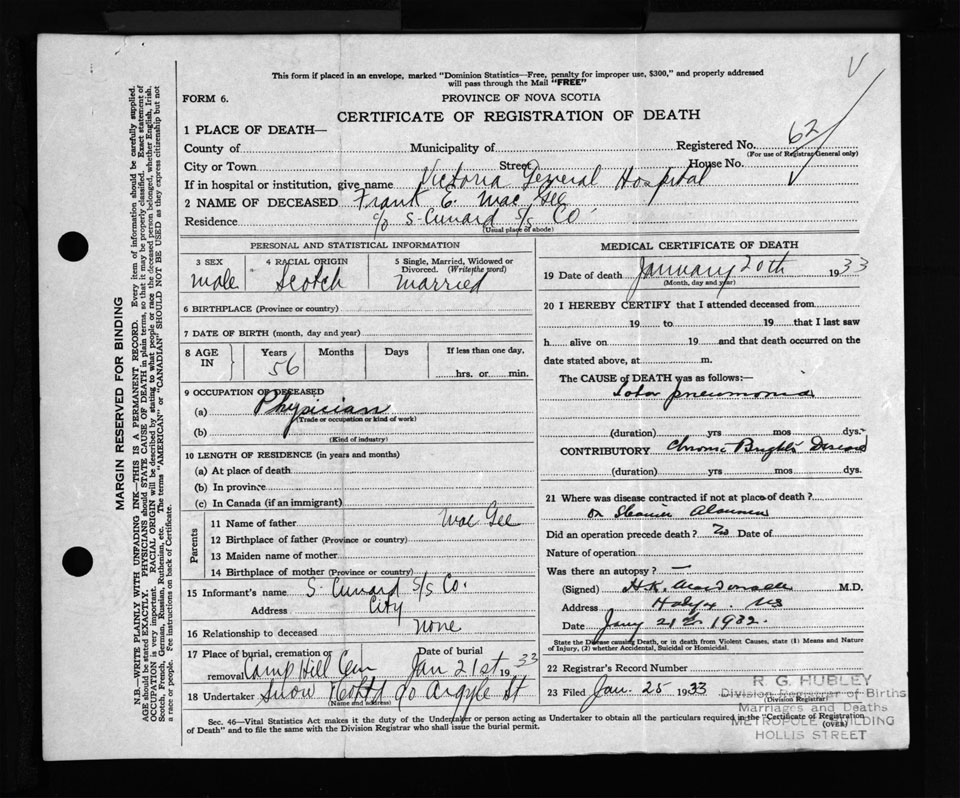 This form if placed in an envelope, marked "Dominion Statistics—Free, penalty for improper use, $300," and properly addressed
will pass through the Mail "FREE"
FORM 6.
PROVINCE OF NOVA SCOTIA
CERTIFICATE OF REGISTRATION OF DEATH
1 PLACE OF DEATH—
County of Municipality of Registered No. 62
(For use of Registrar General only)
City or Town Street House No.
If in hospital or institution, give name Victoria General Hospital
2 NAME OF DECEASED Frank C. Mac Gee
Residence c/o S. Cunard S/S Co.
(Usual place of abode)
PERSONAL AND STATISTICAL INFORMATION
3 SEX 4 RACIAL ORIGIN 5 Single, Married, Widowed or Divorced. (Write the word)
male Scotch Married
6 BIRTHPLACE (Province or country)
7 DATE OF BIRTH (month, day and year)
8 AGE IN Years Months Days If less than one day,
56 hrs. or min.
9 OCCUPATION OF DECEASED
(a) Physician
(Trade or occupation or kind of work)
(b)
(Kind of industry)
10 LENGTH OF RESIDENCE (in years and months)
(a) At place of death
(b) In province
(c) In Canada (if an immigrant)
Parents
11 Name of father Mac Gee
12 Birthplace of father (Province or country)
13 Maiden name of mother
14 Birthplace of mother (Province or country)
15 Informant's name S. Cunard S/S Co.
Address City
16 Relationship to deceased none
17 Place of burial, cremation or removal Camp Hill Cem Date of burial Jan 21st 1933
18 Undertaker Snow & Co Ltd 90 Argyle St
(Name and address)
MEDICAL CERTIFICATE OF DEATH
19 Date of death January 20th 1933
(Month, day and year)
20 I HEREBY CERTIFY that I attended deceased from
19 to 19 that I last saw
h alive on 19 and that death occurred on the
date stated above, at m.
The CAUSE of DEATH was as follows:—
Lobar pneumonia
(duration) yrs mos dys.
CONTRIBUTORY Chronic Bright's Disease
(duration) yrs mos dys.
21 Where was disease contracted if not at place of death?
on Steamer
Did an operation precede death? No Date of
Nature of operation
Was there an autopsy? —
(Signed) H.K. MacDonald M.D.
Address Halifax. NS
Date Jany 21st 1932.
State the Disease causing Death, or in death from Violent Causes, state (1) Means and Nature
of Injury, (2) whether Accidental, Suicidal or Homicidal.
22 Registrar's Record Number
23 Filed Jan. 25 1933
(Division Registrar)
R. G. HUBLEY
Division Registrar of Births
Marriages and Deaths
METROPOLE BUILDING
HOLLIS STREET
Sec. 46—Vital Statistics Act makes it the duty of the Undertaker or person acting as Undertaker to obtain all the particulars required in the "Certificate of Registration
of Death" and to file the same with the Division Registrar who shall issue the burial permit.
(OVER)
MARGIN RESERVED FOR BINDING
N.B.—WRITE PLAINLY WITH UNFADING INK—THIS IS A PERMANENT RECORD. Every item of information should be carefully supplied.
AGE should be stated EXACTLY. PHYSICIANS should STATE CAUSE OF DEATH in plain terms, so that it may be properly classified. Exact statement of
OCCUPATION is very important. RACIAL ORIGIN will be described by stating to what people or race the deceased person belonged, whether English, Irish,
Scotch, French, German, Russian, Ruthenian, etc. The terms "AMERICAN" or "CANADIAN" SHOULD NOT BE USED as they express citizenship but not
a race or people. Fee instructions on back of Certificate.